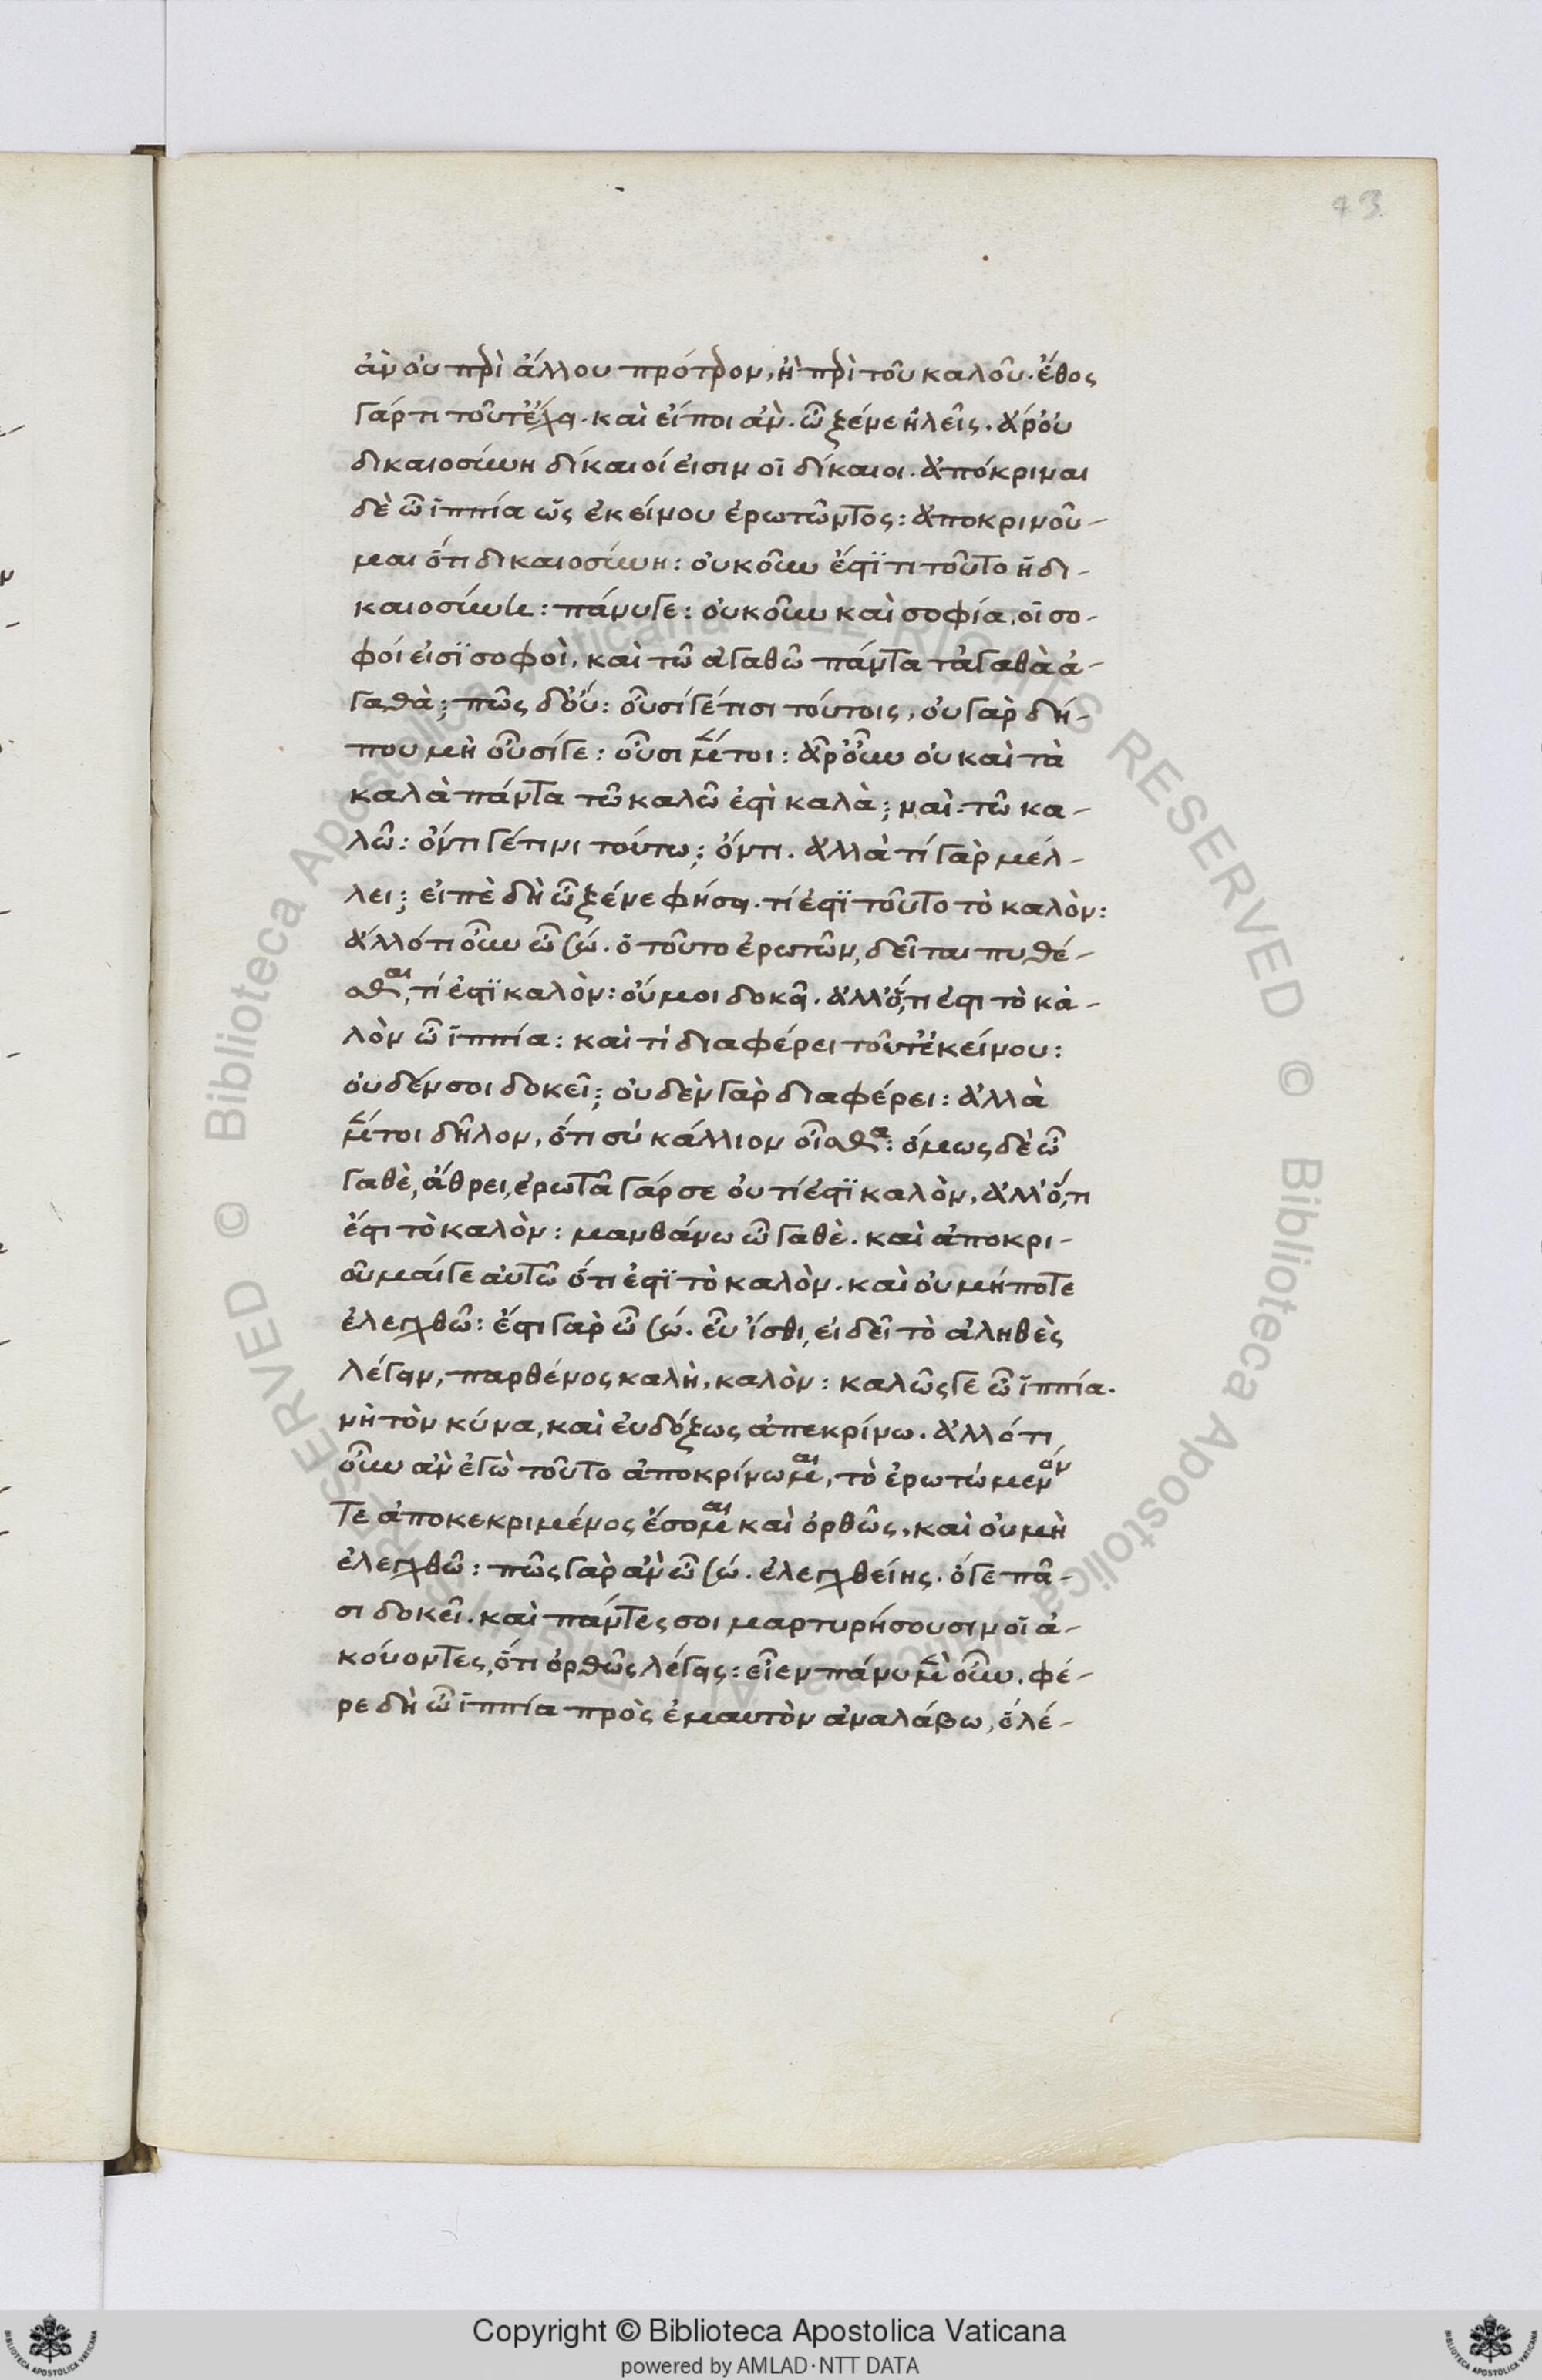 73
ἂν οὐ περὶ ἄλλου πρότερον, ἢ περὶ τοῦ καλοῦ. ἔθος
γάρ τι τοῦτ' ἔχει. καὶ εἴποι ἂν. ὦ ξένε ἠλεῖς. ἆρ' οὐ
δικαιοσύνη δίκαιοί εἰσιν οἱ δίκαιοι. ἀπόκριναι
δὲ ὦ ἱππία ὡς ἐκείνου ἐρωτῶντος: ἀποκρινοῦ-
μαι ὅτι δικαιοσύνη: οὐκοῦν ἔστϊ τι τοῦτο ἡ δι-
καιοσύνη: πάνυγε: οὐκοῦν καὶ σοφία, οἱ σο-
φοί εἰσϊ σοφοὶ, καὶ τῶ ἀγαθῶ πάντα τἀγαθὰ ἀ-
γαθὰ; πῶς δ' οὔ: οὖσί γέ τισι τούτοις, οὐ γὰρ δή-
που μὴ οὖσί γε: οὖσι μέντοι: ἆρ' οὖν οὐ καὶ τὰ
καλὰ πάντα τῶ καλῶ ἐστὶ καλὰ; ναὶ: τῶ κα-
λῶ: ὄντι γέ τινι τούτω; ὄντι. ἀλλὰ τί γὰρ μέλ-
λει; εἰπὲ δὴ ὦ ξένε φήσει. τί ἐστϊ τοῦτο τὸ καλὸν:
ἄλλό τι οὖν ὦ σώ. ὁ τοῦτο ἐρωτῶν, δεῖται πυθέ-
σθαι, τί ἐστϊ καλὸν: οὔ μοι δοκεῖ. ἀλλ' ὅ,τι ἐστι τὸ κα-
λὸν ὦ ἱππία: καὶ τί διαφέρει τοῦτ' ἐκείνου:
οὐδέν σοι δοκεῖ; οὐδὲν γὰρ διαφέρει: ἀλλὰ
μέντοι δῆλον, ὅτι σὺ κάλλιον οἶσθα: ὅμως δὲ ὦ
γαθὲ, ἄθρει, ἐρωτᾶ γάρ σε οὐ τί ἐστϊ καλὸν, ἀλλ' ὅ,τι
ἔστι τὸ καλὸν: μανθάνω ὦ γαθὲ. καὶ ἀποκρι-
οῦμαί γε αὐτῶ ὅτι ἐστϊ τὸ καλὸν. καὶ οὐ μήποτε
ἐλεγχθῶ: ἔστι γὰρ ὦ σώ. εὖ ἴσθι, εἰ δεῖ τὸ ἀληθὲς
λέγειν, παρθένος καλὴ, καλὸν: καλῶς γε ὦ ἱππία.
νὴ τὸν κύνα, καὶ εὐδόξως ἀπεκρίνω. ἄλλό τι
οὖν ἂν ἐγὼ τοῦτο ἀποκρίνωμαι, τὸ ἐρωτώμενόν
τε ἀποκεκριμένος ἔσομαι καὶ ὀρθῶς, καὶ οὐ μὴ
ἐλεγχθῶ: πῶς γὰρ ἂν ὦ σώ. ἐλεγχθείης. ὅ γε πᾶ-
σι δοκεῖ. καὶ πάντες σοι μαρτυρήσουσιν οἱ ἀ-
κούοντες, ὅτι ὀρθῶς λέγεις: εἶεν πάνυ μὲν οὖν. φέ-
ρε δὴ ὦ ἱππία πρὸς ἐμαυτὸν ἀναλάβω, ὃ λέ-
Copyright © Biblioteca Apostolica Vaticana
powered by AMLAD·NTT DATA